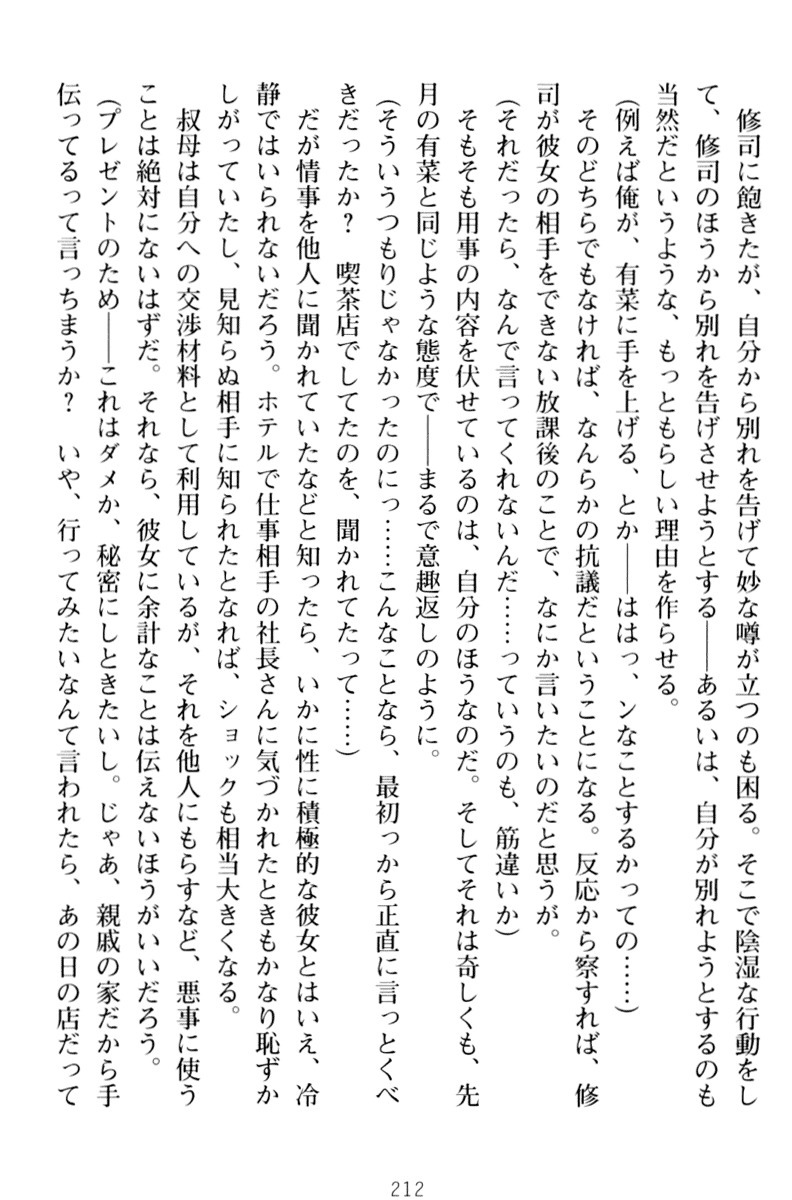 修司に飽きたが、自分から別れを告げて妙な噂が立つのも困る。そこで陰湿な行動をし
て、修司のほうから別れを告げさせようとする――あるいは、自分が別れようとするのも
当然だというような、もっともらしい理由を作らせる。
（例えば俺が、有菜に手を上げる、とか――ははっ、ンなことするかっての……）
　そのどちらでもなければ、なんらかの抗議だということになる。反応から察すれば、修
司が彼女の相手をできない放課後のことで、なにか言いたいのだと思うが。
（それだったら、なんで言ってくれないんだ……っていうのも、筋違いか）
　そもそも用事の内容を伏せているのは、自分のほうなのだ。そしてそれは奇しくも、先
月の有菜と同じような態度で――まるで意趣返しのように。
（そういうつもりじゃなかったのにっ……こんなことなら、最初っから正直に言っとくべ
きだったか？　喫茶店でしてたのを、聞かれてたって……）
　だが情事を他人に聞かれていたなどと知ったら、いかに性に積極的な彼女とはいえ、冷
静ではいられないだろう。ホテルで仕事相手の社長さんに気づかれたときもかなり恥ずか
しがっていたし、見知らぬ相手に知られたとなれば、ショックも相当大きくなる。
　叔母は自分への交渉材料として利用しているが、それを他人にもらすなど、悪事に使う
ことは絶対にないはずだ。それなら、彼女に余計なことは伝えないほうがいいだろう。
（プレゼントのため――これはダメか、秘密にしときたいし。じゃあ、親戚の家だから手
伝ってるって言っちまうか？　いや、行ってみたいなんて言われたら、あの日の店だって
212